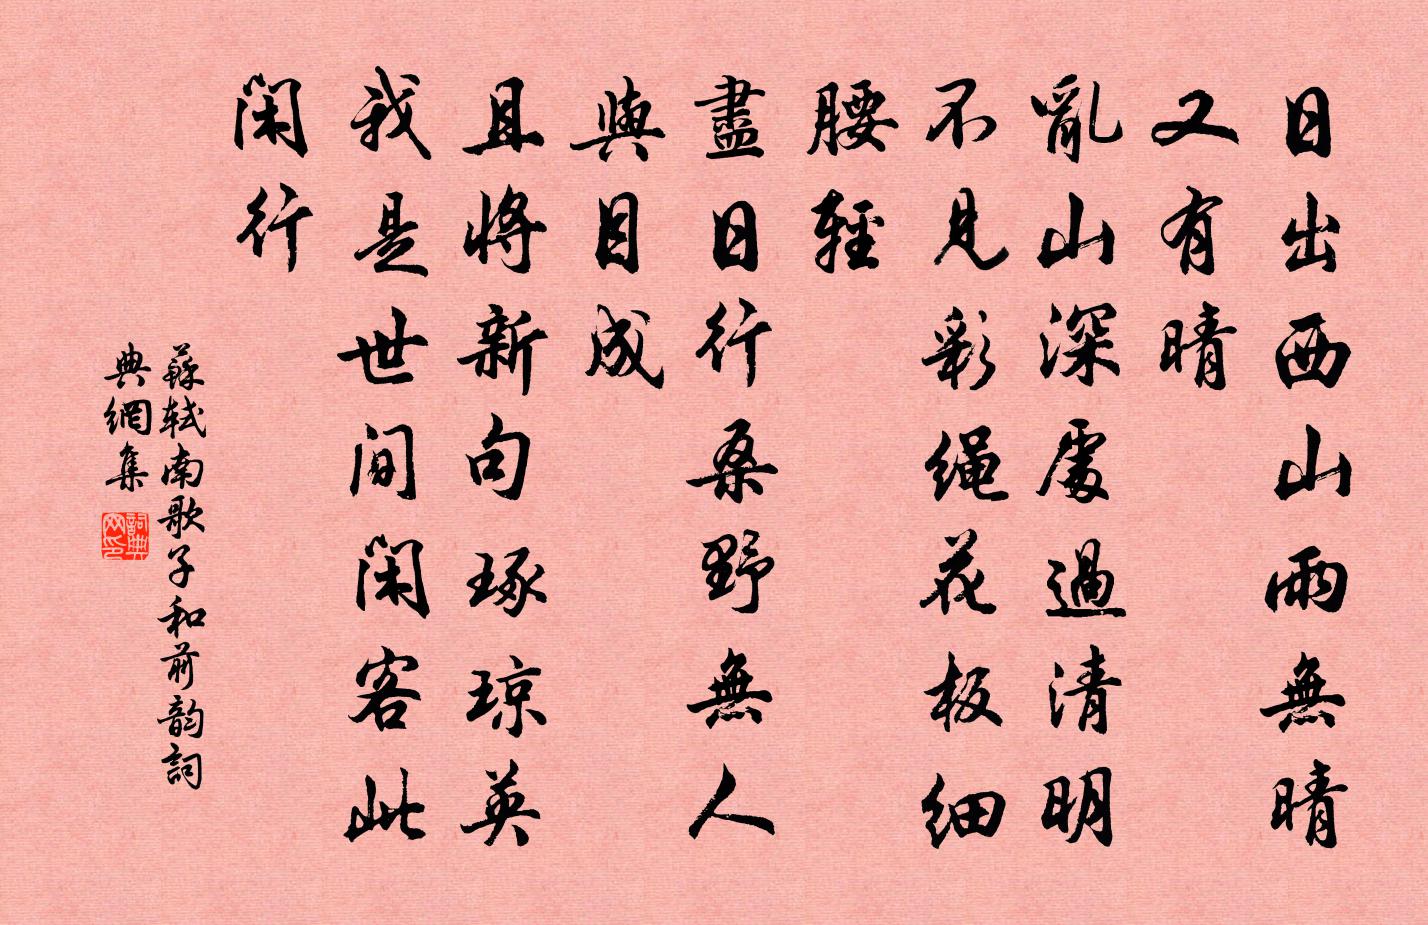 日出西山雨無晴
又有晴
亂山深處過清明
不見彩绳花板细
腰輕
盡日行桑野無人
與目成
且將新句琢琼英
我是世间閑客此
閑行
蘇轼南歌子和前韵詞
典網集
詞典网印